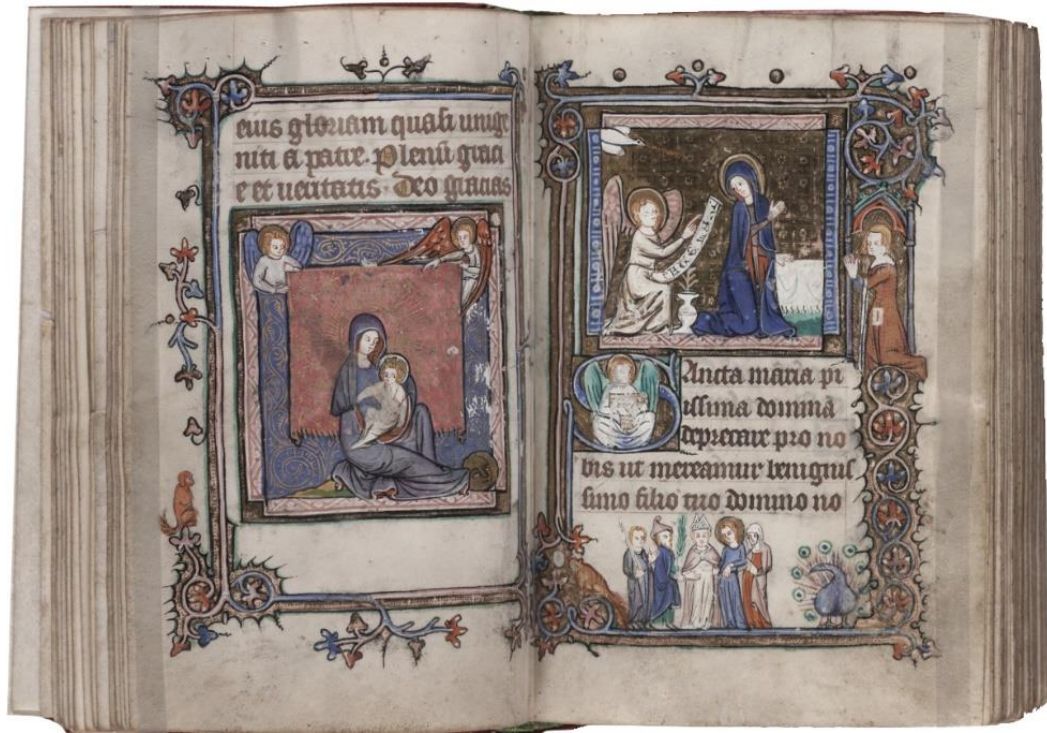 eius gloriam quasi unige
niti a patre. Plenū graci
e et ueritatis. Deo gracias
Sancta maria pi
issima domina
deprecare pro no
bis ut mereamur benignis
simo filio tuo domino no